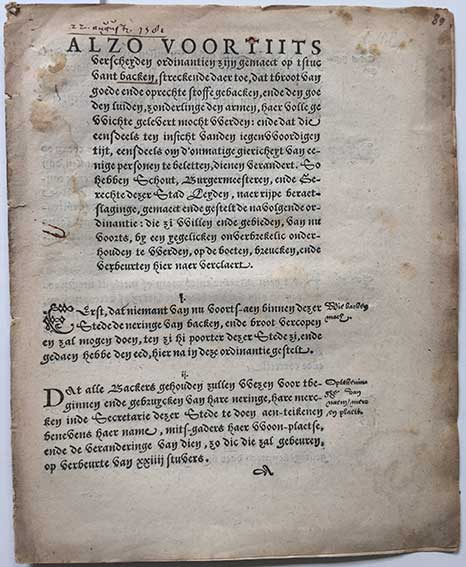 22. augusti. 1581
89
ALZO VOORTIITS
verscheyden ordinantien zijn gemaect op tstuc
vant backen, streckende daer toe, dat tbroot van
goede ende oprechte stoffe gebacken, ende den goe
den luiden, zonderlinge den armen, haer volle ge
wichte gelevert mocht werden: ende dat die
eensdeels ten insicht vanden iegenwoordigen
tijt, eensdeels om d'onmatige giericheyt van ee-
nige personen te beletten, dienen verandert. So
hebben Schout, Burgermeesteren, ende Ge-
rechte dezer Stad Leyden, naer rijpe beraet-
slaginge, gemaect ende gestelt de navolgende or-
dinantie: die zi willen ende gebieden, van nu
voorts, by een yegelicken onverbrekelic onder-
houden te werden, op de boeten, breucken, ende
verbeurten hier naer verclaert.
i.
Eerst, dat niemant van nu voorts-aen binnen dezer
Stede de neringe van backen, ende broot vercopen
en zal mogen doen, ten zi hi poorter dezer Stede zi, ende
gedaen hebbe den eed, hier na in deze ordinantie gestelt.
Wie backen
mach.
ij.
Dat alle Backers gehouden zullen wezen voor tbe-
ginnen ende gebruycken van hare neringe, hare merc-
ken inde Secretarie dezer Stede te doen aen-teikenen
benevens haer name, mits-gaders haer woon-plaetse,
ende de veranderinge van dien, zo die die zal gebeuren,
op verbeurte van xxiiij stuvers.
van
naem/merc
en plaets.
A